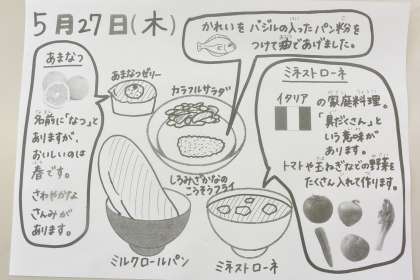 5月27日(木)
かれいをバジルの入ったパン粉を
つけて油であげました。
あまなつ
名前に「なつ」と
ありますが、
おいしいのは
春です。
さわやかな
さんみが
あります。
あまなつゼリー
カラフルサラダ
しろみざかなの
こうそうフライ
ミルクロールパン
ミネストローネ
ミネストローネ
イタリア
の家庭料理。
「具だくさん」と
いう意味が
あります。
トマトや玉ねぎなどの野菜を
たくさん入れて作ります。